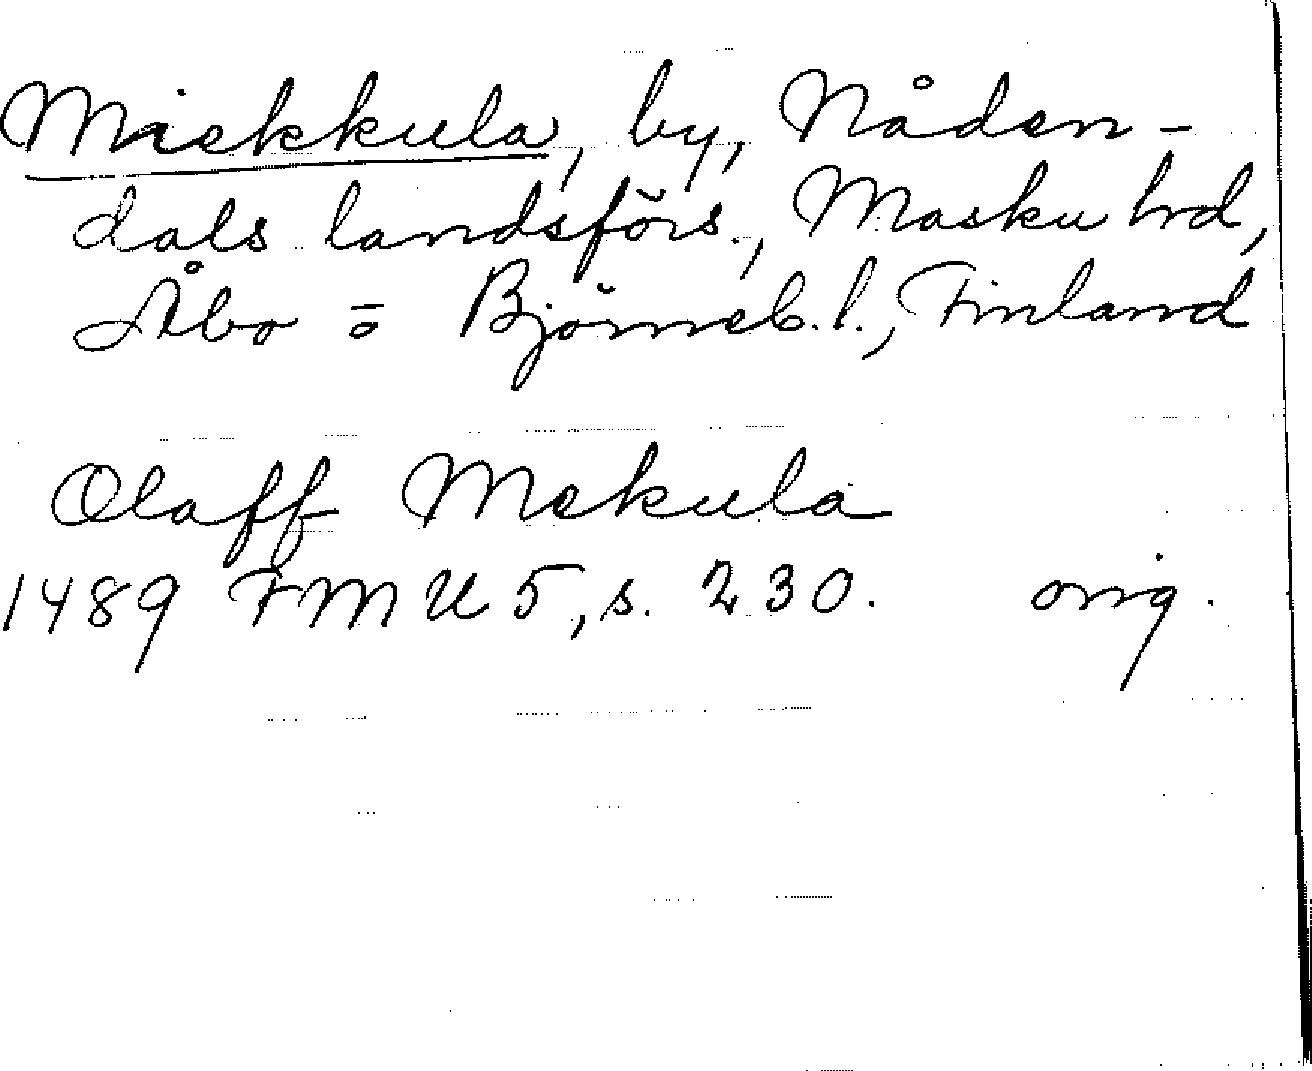 Miekkula, by, Nåden-
dals landsförs., Masku hrd,
Åbo = Björneb. l., Finland
Olaff Mekula
1489 FMU 5, s. 230. orig.